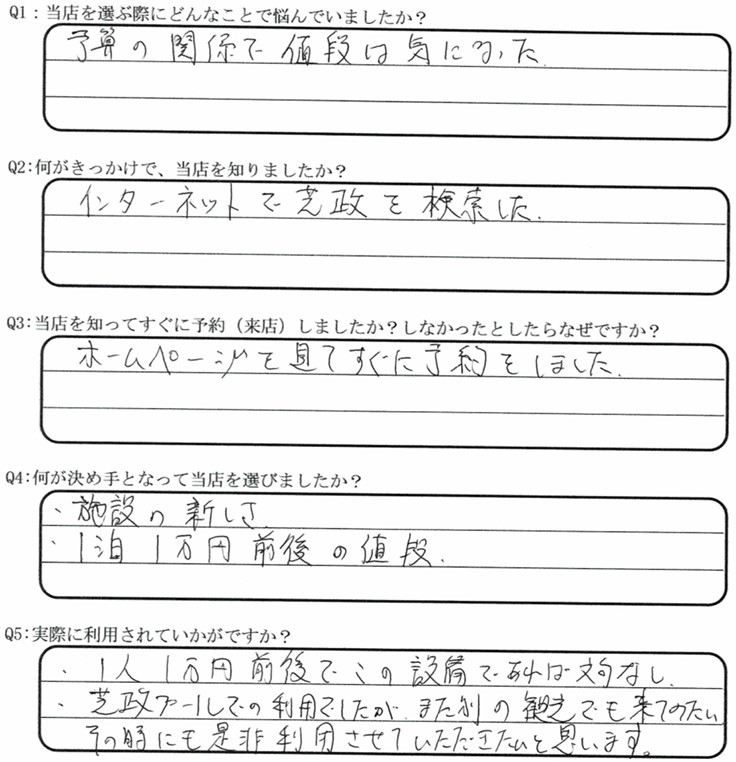 Q1：当店を選ぶ際にどんなことで悩んでいましたか？
予算の関係で値段は気になった.
Q2:何がきっかけで、当店を知りましたか？
インターネットで芝政を検索した.
Q3:当店を知ってすぐに予約（来店）しましたか？しなかったとしたらなぜですか？
ホームページを見てすぐに予約をしました.
Q4:何が決め手となって当店を選びましたか？
・施設の新しさ
・1泊1万円前後の値段.
Q5:実際に利用されていかがですか？
・1人1万円前後でこの設備であれば文句なし.
・芝政プールでの利用でしたが、また別の観光でも来てみたい
その時にも是非利用させていただきたいと思います。